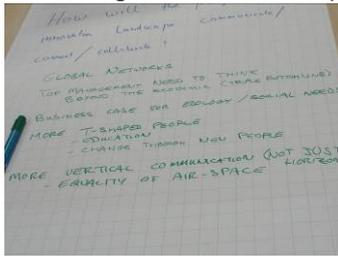 How will the
innovation Landscape communicate/
connect/collaborate?
GLOBAL NETWORKS
TOP MANAGEMENT NEED TO THINK
BEYOND THE ECONOMIC (TRIPLE BOTTOMLINE)
BUSINESS CASE FOR ECOLOGY/SOCIAL NEEDS
MORE T-SHAPED PEOPLE
- EDUCATION
- CHANGE THROUGH NEW PEOPLE
MORE VERTICAL COMMUNICATION (NOT JUST
- EQUALITY OF AIR-SPACE HORIZON